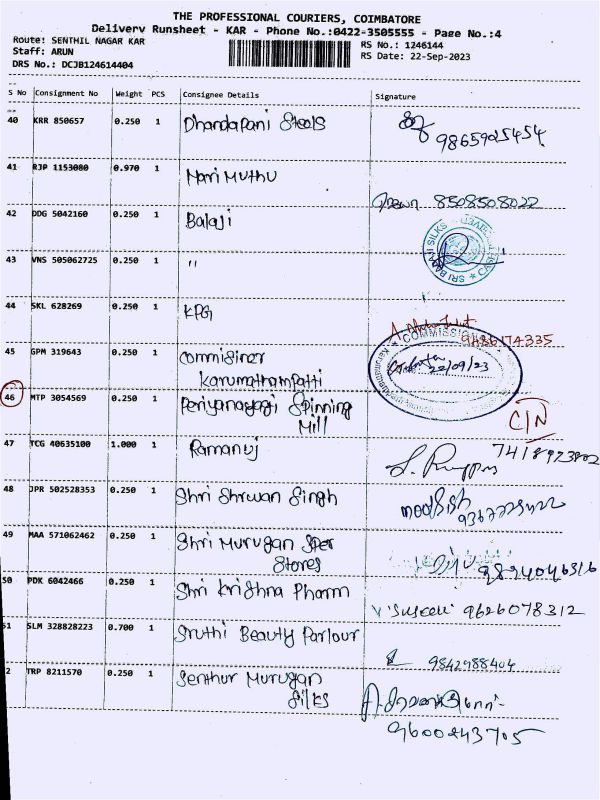 THE PROFESSIONAL COURIERS, COIMBATORE
Delivery Runsheet - KAR - Phone No.:0422-3505555 - Page No.:4
Route: SENTHIL NAGAR KAR
Staff: ARUN
DRS No.: DCJB124614404
RS No.: 1246144
RS Date: 22-Sep-2023
S No Consignment No Weight PCS Consignee Details Signature
40 KRR 850657 0.250 1 Dhandapani Steels
9865925454
41 RJP 1153080 0.970 1 Mari Muthu
8508508022
42 DDG 5042160 0.250 1 Balaji
SRI BALAJI SILKS
43 VNS 505062725 0.250 1 "
44 SKL 628269 0.250 1 KPG
9486174335
45 GPM 319643 0.250 1 Commisiner
Karumathampatti
COMMISSION
22/09/23
46 MTP 3054569 0.250 1 Periyanayagi Spinning
Mill
C/N
47 TCG 40635100 1.000 1 Ramanuj
48 JPR 502528353 0.250 1 Shri Shrwan Singh
49 MAA 571062462 0.250 1 Shri Murugan
Stores
50 PDK 6042466 0.250 1 Shri Krishna Pharm
9626078312
51 SLM 328828223 0.700 1 Sruthi Beauty Parlour
9842988404
2 TRP 8211570 0.250 1 Senthur Murugan
Silks
9600243705